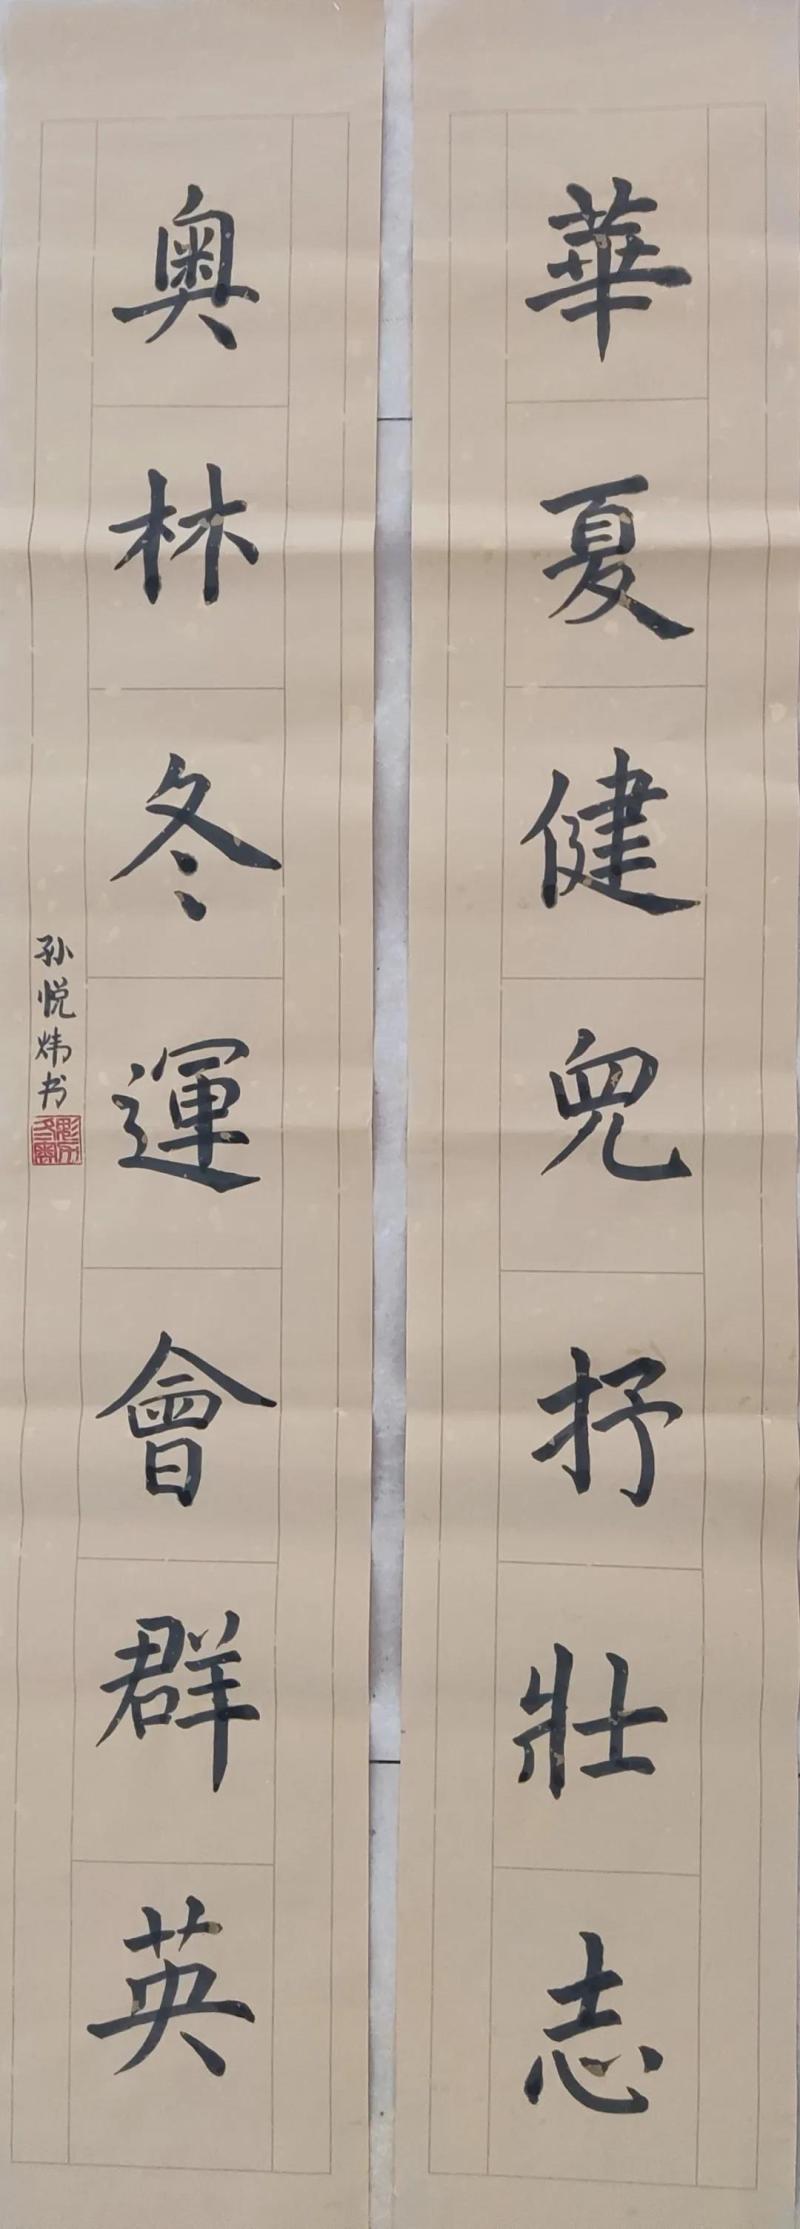 華夏健兒抒壯志
奥林冬運會群英
孙悦炜书